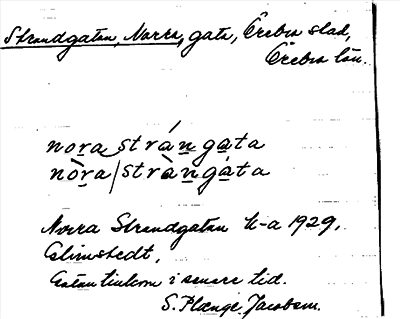 Strandgatan, Norra, gata, Örebro stad,
Örebro län.
nora strángata
nòra/stràngáta
Norra Strandgatan K-a 1929,
Glimstedt,
Gatan tillkom i senare tid.
S. Plænge Jacobson.